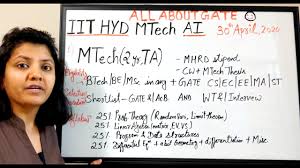 ALL ABOUT GATE
IIT HYD MTech AI 30th April, 2020
MTech (2yr, TA) - MHRD stipend
- CW + MTech Thesis
BTech/BE/MSc in any + GATE CS/EC/EE/MA/ST
Shortlist - GATE & AoB AND WT & Interview
25% Prob. Theory (Random Var, Limit theorem)
25% Linear Algebra (Matrices, EV, VS)
25% Program & Data structures
25% Differential Eqn + 2D Geometry + differentiation + Misc